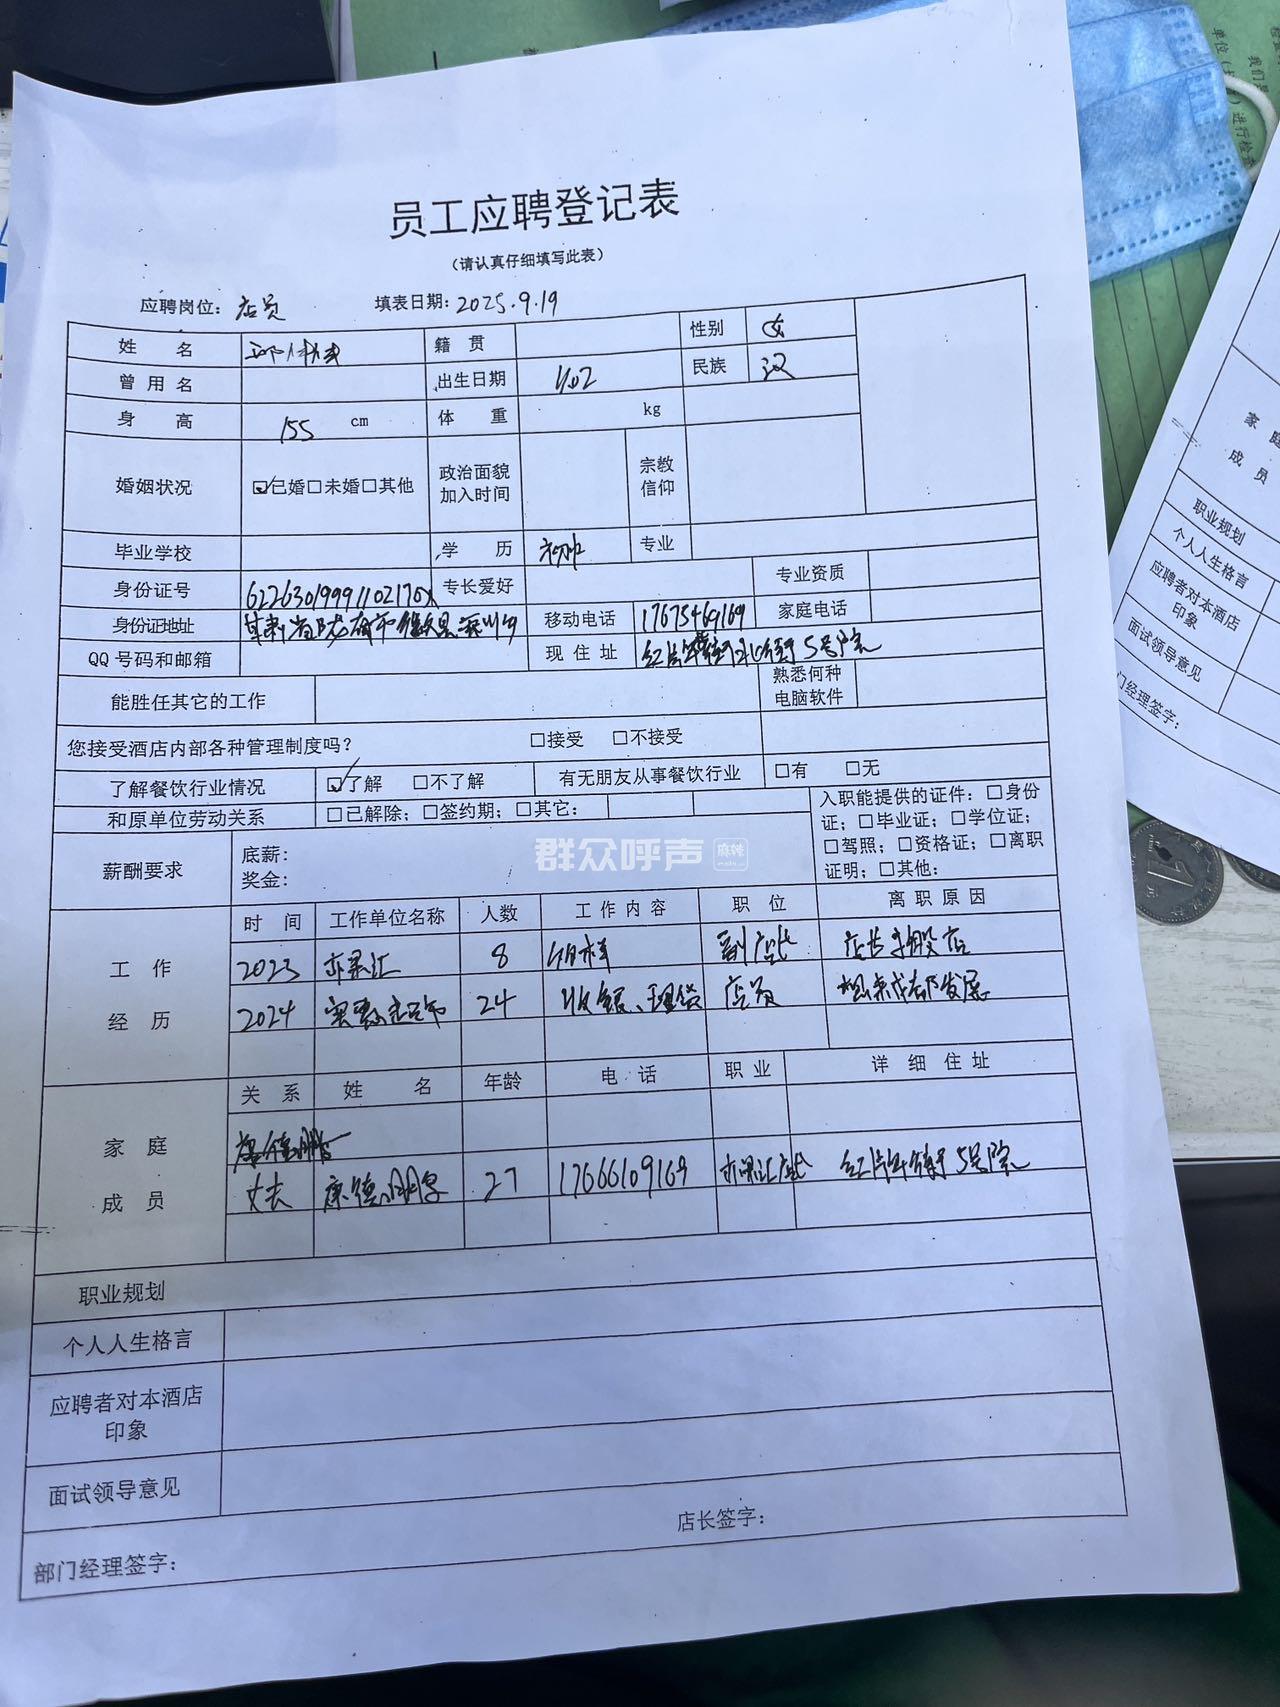 员工应聘登记表
（请认真仔细填写此表）
应聘岗位：店员 填表日期：2025.9.19
姓 名 籍 贯 性别 女
曾 用 名 出生日期 民族 汉
身 高 155 cm 体 重 kg
婚姻状况 ☑已婚□未婚□其他 政治面貌加入时间 宗教信仰
毕业学校 学 历 初中 专业
身份证号 专长爱好 专业资质
身份证地址 甘肃省陇南市 移动电话 17675469169 家庭电话
QQ号码和邮箱 现 住 址 5号院
能胜任其它的工作 熟悉何种电脑软件
您接受酒店内部各种管理制度吗？ □接受 □不接受
了解餐饮行业情况 ☑了解 □不了解 有无朋友从事餐饮行业 □有 □无
和原单位劳动关系 □已解除；□签约期；□其它： 入职能提供的证件：□身份证；□毕业证；□学位证；□驾照；□资格证；□离职证明；□其他：
薪酬要求 底薪：
奖金：
群众呼声 麻辣
工 作 经 历 时 间 工作单位名称 人数 工作内容 职 位 离职原因
2023 亦果汇 8 副店长
2024 24 收银、理货 店员 想来成都发展
家 庭 成 员 关 系 姓 名 年龄 电 话 职 业 详 细 住 址
丈夫 27 17666109169 亦果汇店长 5号院
职业规划
个人人生格言
应聘者对本酒店印象
面试领导意见
部门经理签字： 店长签字：
家 庭
成 员
职业规划
个人人生格言
应聘者对本酒店
印象
面试领导意见
门经理签字：